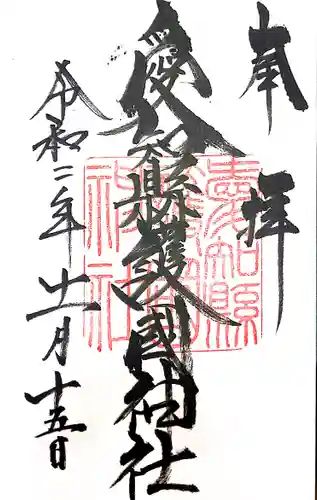 奉拝
愛知縣護國神社
愛知縣護國神社
令和二年十一月十五日